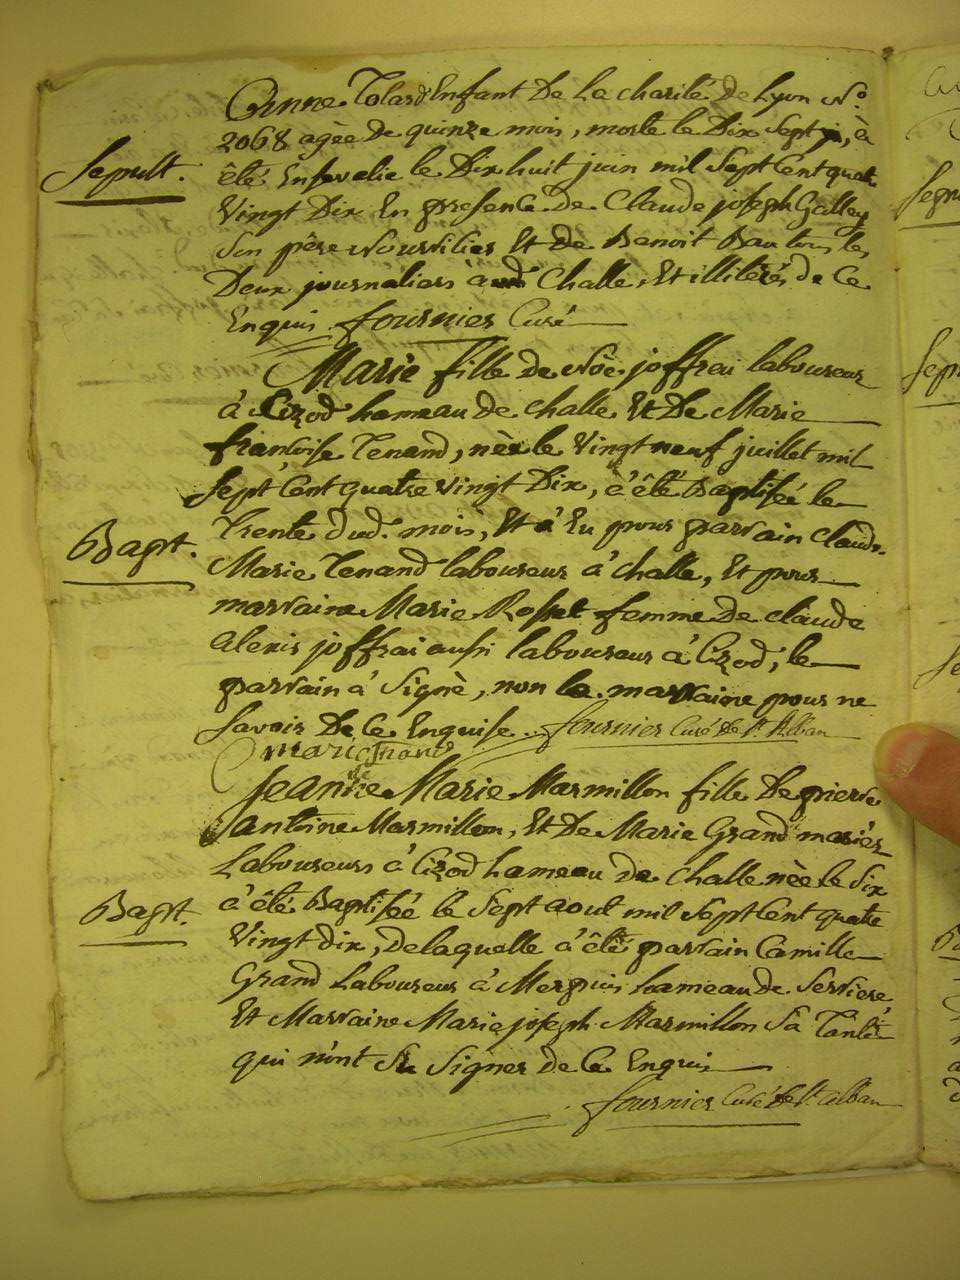 Anne Tolard Enfant De La charité De Lyon No.
2068 agèe de quinze mois, morte le Dix Sept ju, à
Sepult.
êté Ensevelie le Dix huit juin mil Sept Cent quat
Vingt Dix En presence de Claude joseph Galley
Son pêre Nourricier Et de Benoit les
Deux journaliers à Challe, Et illiterés de Ce
Enquis fournier Curé
Marie fille de Noë joffrai laboureur
à Cizod hameau de challe Et De Marie
françoise Tenand, nèe le Vingt neuf juillet mil
Sept Cent quatre Vingt Dix, à êté Baptiseé le
Bapt.
Trente dud. mois, Et à Eu pour parrain claude
Marie Tenand laboureur à challe, Et pour
marraine Marie Rosset femme de claude
alexis joffrai aussi laboureur à Cizod, le
parrain à Signè, non la marraine pour ne
Savoir De Ce Enquise. fournier Curé de St. Alban
marie tnand
Jeanne Marie Marmillon fille De pierre
antoine Marmillon, Et De Marie Grand mariés
Laboureurs à Cizod hameau de challe nèe le Six
Bapt.
à êté Baptiseé le Sept aout mil Sept Cent quatre
Vingt dix, De laquelle à êté parrain Camille
Grand Laboureur à Merpuis hameau de Serriere
Et Marraine Marie joseph Marmillon Sa Tante
qui n'ont Su Signer de Ce Enquis
fournier Curé de St. alban